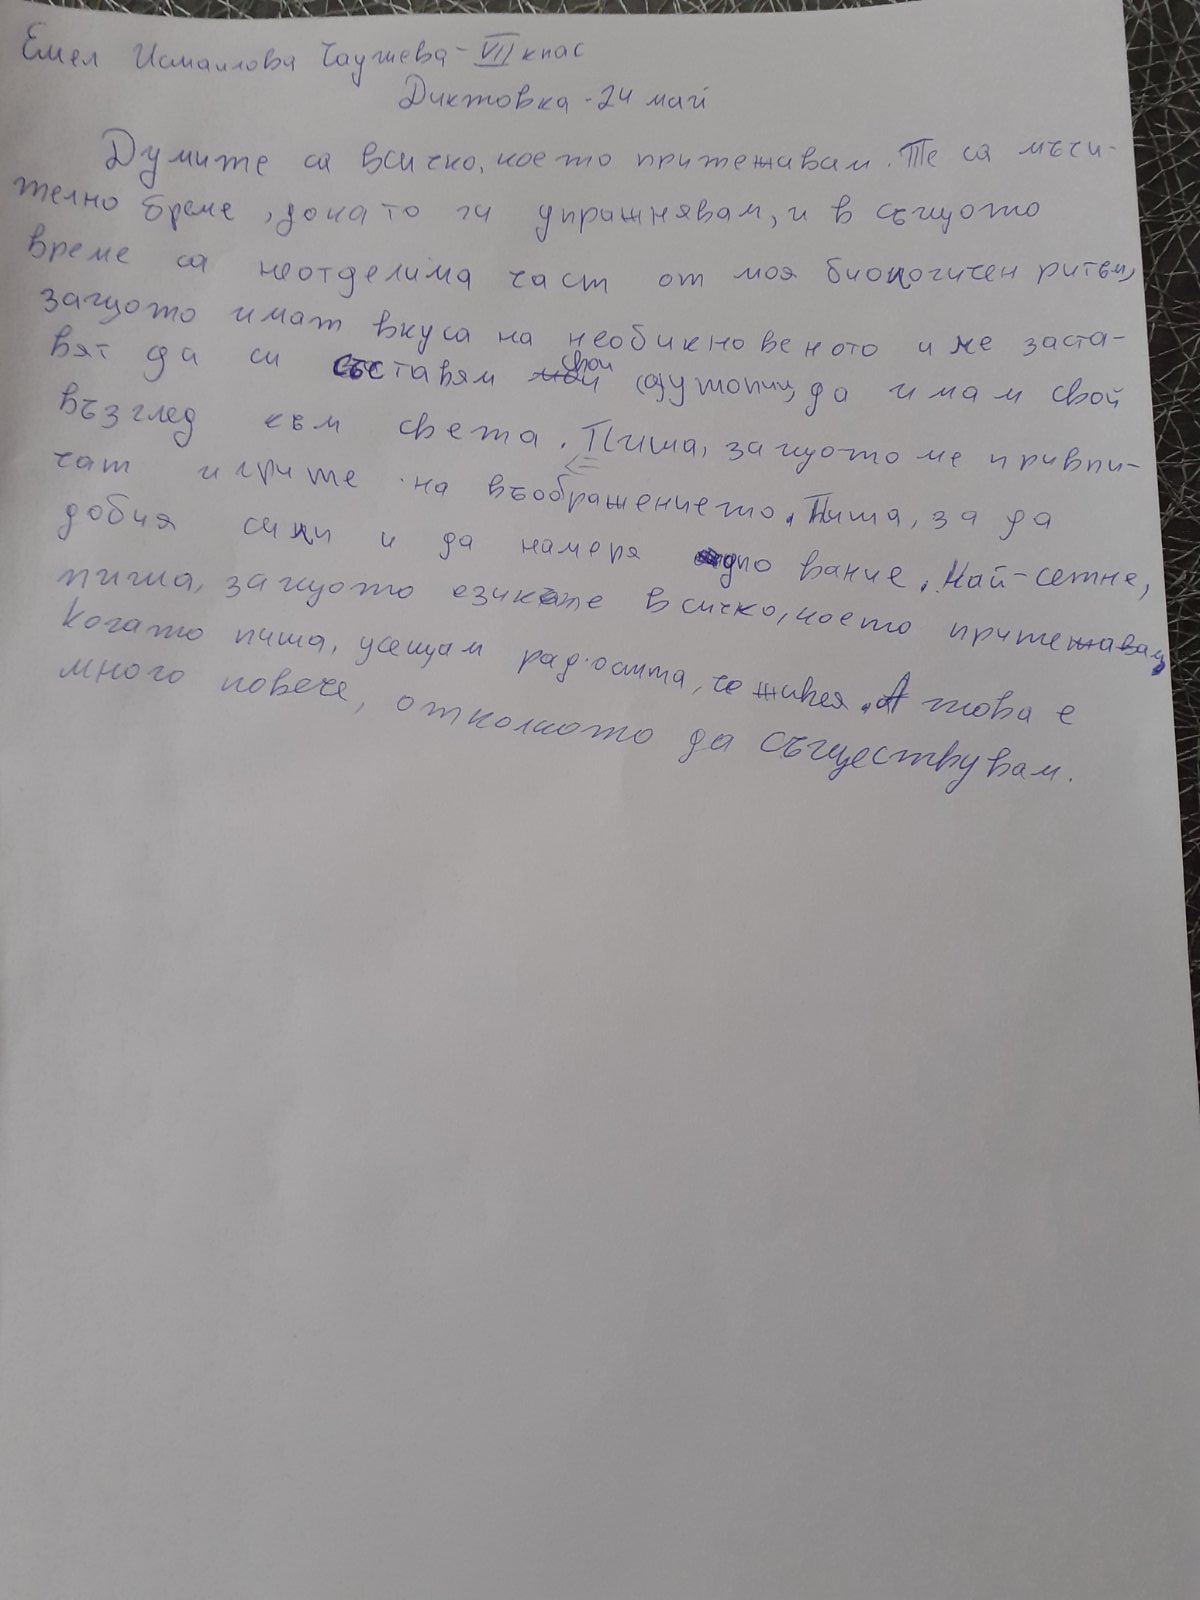 Емел Исмаилова Чаушева - VII клас
Диктовка - 24 май
Думите са всичко, което притежавам. Те са мъчи-
телно бреме, докато ги упражнявам, и в същото
време са неотделима част от моя биологичен ритъм,
защото имат вкуса на необикновеното и ме заста-
вят да си съставям свои (а)утопии, да имам свой
възглед към света. Пиша, защото ме привли-
чат игрите на въображението. Пиша, за да
добия сили и да намеря упование. Най-сетне,
пиша, защото езикът е всичко, което притежавам,
Когато пиша, усещам радостта, че живея. А това е
много повече, отколкото да съществувам.